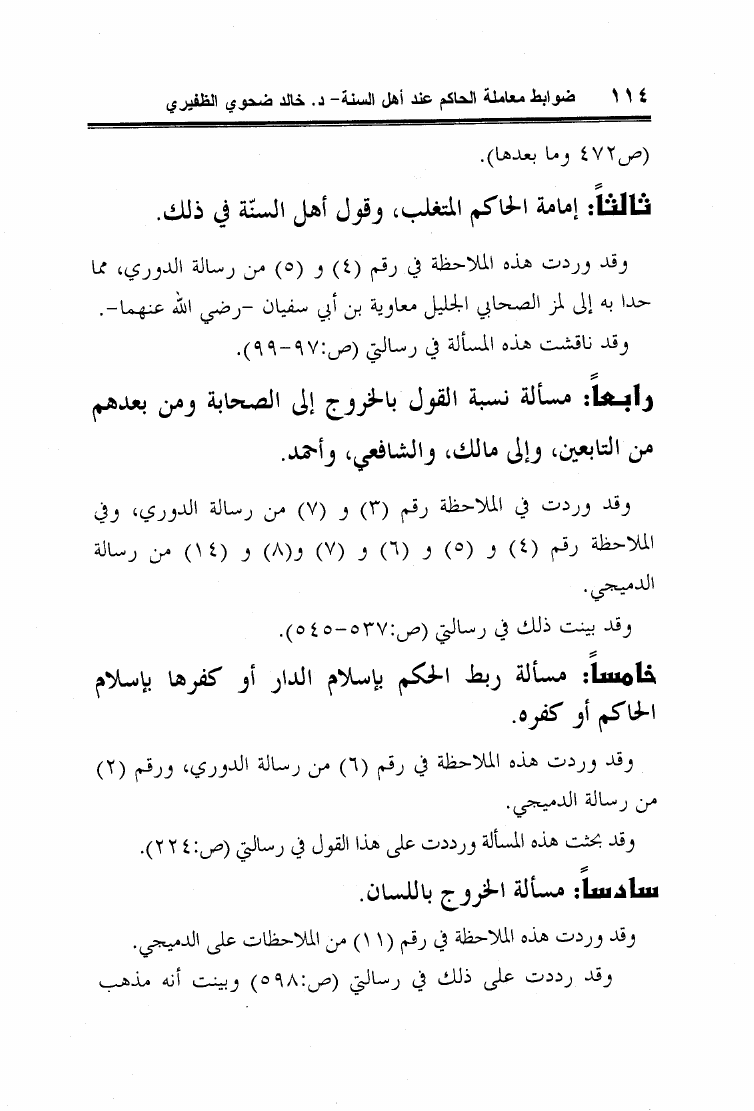 ١١٤ ضوابط معاملة الحاكم عند أهل السنة- د. خالد ضحوي الظفيري
(ص٤٧٢ وما بعدها).
ثالثاً: إمامة الحاكم المتغلب، وقول أهل السنّة في ذلك.
وقد وردت هذه الملاحظة في رقم (٤) و (٥) من رسالة الدوري، مما
حدا به إلى لمز الصحابي الجليل معاوية بن أبي سفيان -رضي الله عنهما-.
وقد ناقشت هذه المسألة في رسالتي (ص:٩٧-٩٩).
رابعاً: مسألة نسبة القول بالخروج إلى الصحابة ومن بعدهم
من التابعين، وإلى مالك، والشافعي، وأحمد.
وقد وردت في الملاحظة رقم (٣) و (٧) من رسالة الدوري، وفي
الملاحظة رقم (٤) و (٥) و (٦) و (٧) و(٨) و (١٤) من رسالة
الدميجي.
وقد بينت ذلك في رسالتي (ص:٥٣٧-٥٤٥).
خامساً: مسألة ربط الحكم بإسلام الدار أو كفرها بإسلام
الحاكم أو كفره.
وقد وردت هذه الملاحظة في رقم (٦) من رسالة الدوري، ورقم (٢)
من رسالة الدميجي.
وقد بحثت هذه المسألة ورددت على هذا القول في رسالتي (ص:٢٢٤).
سادساً: مسألة الخروج باللسان.
وقد وردت هذه الملاحظة في رقم (١١) من الملاحظات على الدميجي.
وقد رددت على ذلك في رسالتي (ص:٥٩٨) وبينت أنه مذهب